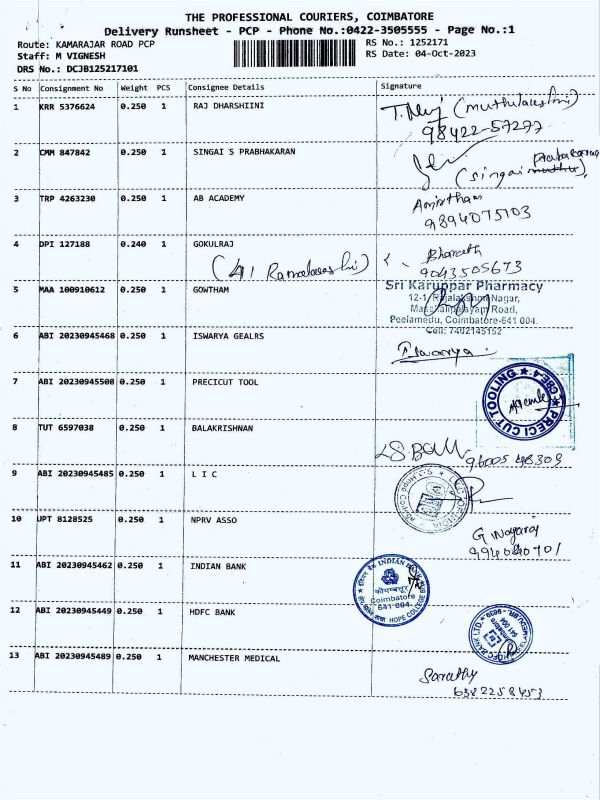 THE PROFESSIONAL COURIERS, COIMBATORE
Delivery Runsheet - PCP - Phone No.:0422-3505555 - Page No.:1
Route: KAMARAJAR ROAD PCP RS No.: 1252171
Staff: M VIGNESH RS Date: 04-Oct-2023
DRS No.: DCJB125217101
S No Consignment No Weight PCS Consignee Details Signature
1 KRR 5376624 0.250 1 RAJ DHARSHIINI (muthulakshmi)
98422-57277
2 CMM 847842 0.250 1 SINGAI S PRABHAKARAN
(Singai Prabakaran)
3 TRP 4263230 0.250 1 AB ACADEMY Amirtham
9894075103
4 DPI 127188 0.240 1 GOKULRAJ Bharath
(41 Ramalakshmi) 9043505673
5 MAA 100910612 0.250 1 GOWTHAM Sri Karuppar Pharmacy
12-1, Rajalakshmi Nagar,
Masakalipalayam Road,
Peelamedu, Coimbatore-641 004.
Cell: 7402145152
6 ABI 20230945468 0.250 1 ISWARYA GEALRS Iswarya
7 ABI 20230945508 0.250 1 PRECICUT TOOL PRECI CUT TOOLING ★ CBE-4 ★
8 TUT 6597038 0.250 1 BALAKRISHNAN
96005 48309
9 ABI 20230945485 0.250 1 L I C
10 UPT 8128525 0.250 1 NPRV ASSO G Nagaraj
9940407 01
11 ABI 20230945462 0.250 1 INDIAN BANK INDIAN BANK
कोयम्बत्तूर
Coimbatore
641 004
HOPE COLLEGE
12 ABI 20230945449 0.250 1 HDFC BANK HDFC BANK LTD.
641 004
13 ABI 20230945489 0.250 1 MANCHESTER MEDICAL Sarathy
6382258453